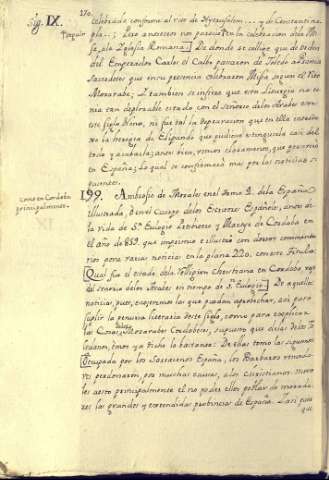 Sig. IX.
270.
celebrada conforme al rito de Hyerusalem .... y de Constantino-
pla...; Pero entonces nos pareció ... la celebracion de la Mi-
sa, ala Iglesia Romana. De donde se collige que de orden
del Emperador Carlos el Calbo passaron de Toledo a Francia
Sacerdotes que en su presencia celebraron Missa segun el Rito
Mozarabe; y tambien se infiere que esta Liturgia no te-
nia tan deplorable estado con el Señorio delos Arabes en
este siglo Nono, ni fue tal la depravacion que en ella introdu-
xo la heregia de Elipando que pudiera
todo y acabarla; antes bien, vemos claramente, que perseveró
en España; Lo qual se confirmará mas por las noticias si-
guientes.
como en Cordoba
principalmente.
199. Ambrosio de Morales en el tomo 2. dela España
illustrada, ò en el Cuerpo delos Escritores Españoles, antes de
la vida de Sn. Eulogio Presbitero y Martyr de Cordoba en
el año de 859. que imprime e illustra con doctos comenta-
rios pone varias noticias en la plana 220. con este titulo:
Qual fue el estado dela Religion Christiana en Cordoba baxo
del señorio delos Arabes en tiempo de S. Eulogio. De aquellas
noticias, pues, cogeremos las que puedan aprobechar, assi para
suplir la penuria literaria deste siglo, como para explicar
las Cosas delos Mozarabes Cordobeses, supuesto que delas delos To-
ledanos, emos ya dicho lo bastante. De ellas toma las siguientes
Ocupada por los Sarracenos España, los Barbaros vencedo-
res perdonaron, por muchas causas, a los Christianos: move-
les a esto principalmente el no poder ellos poblar de morado-
res las grandes y estendidas provincias de España. Casi pues
que